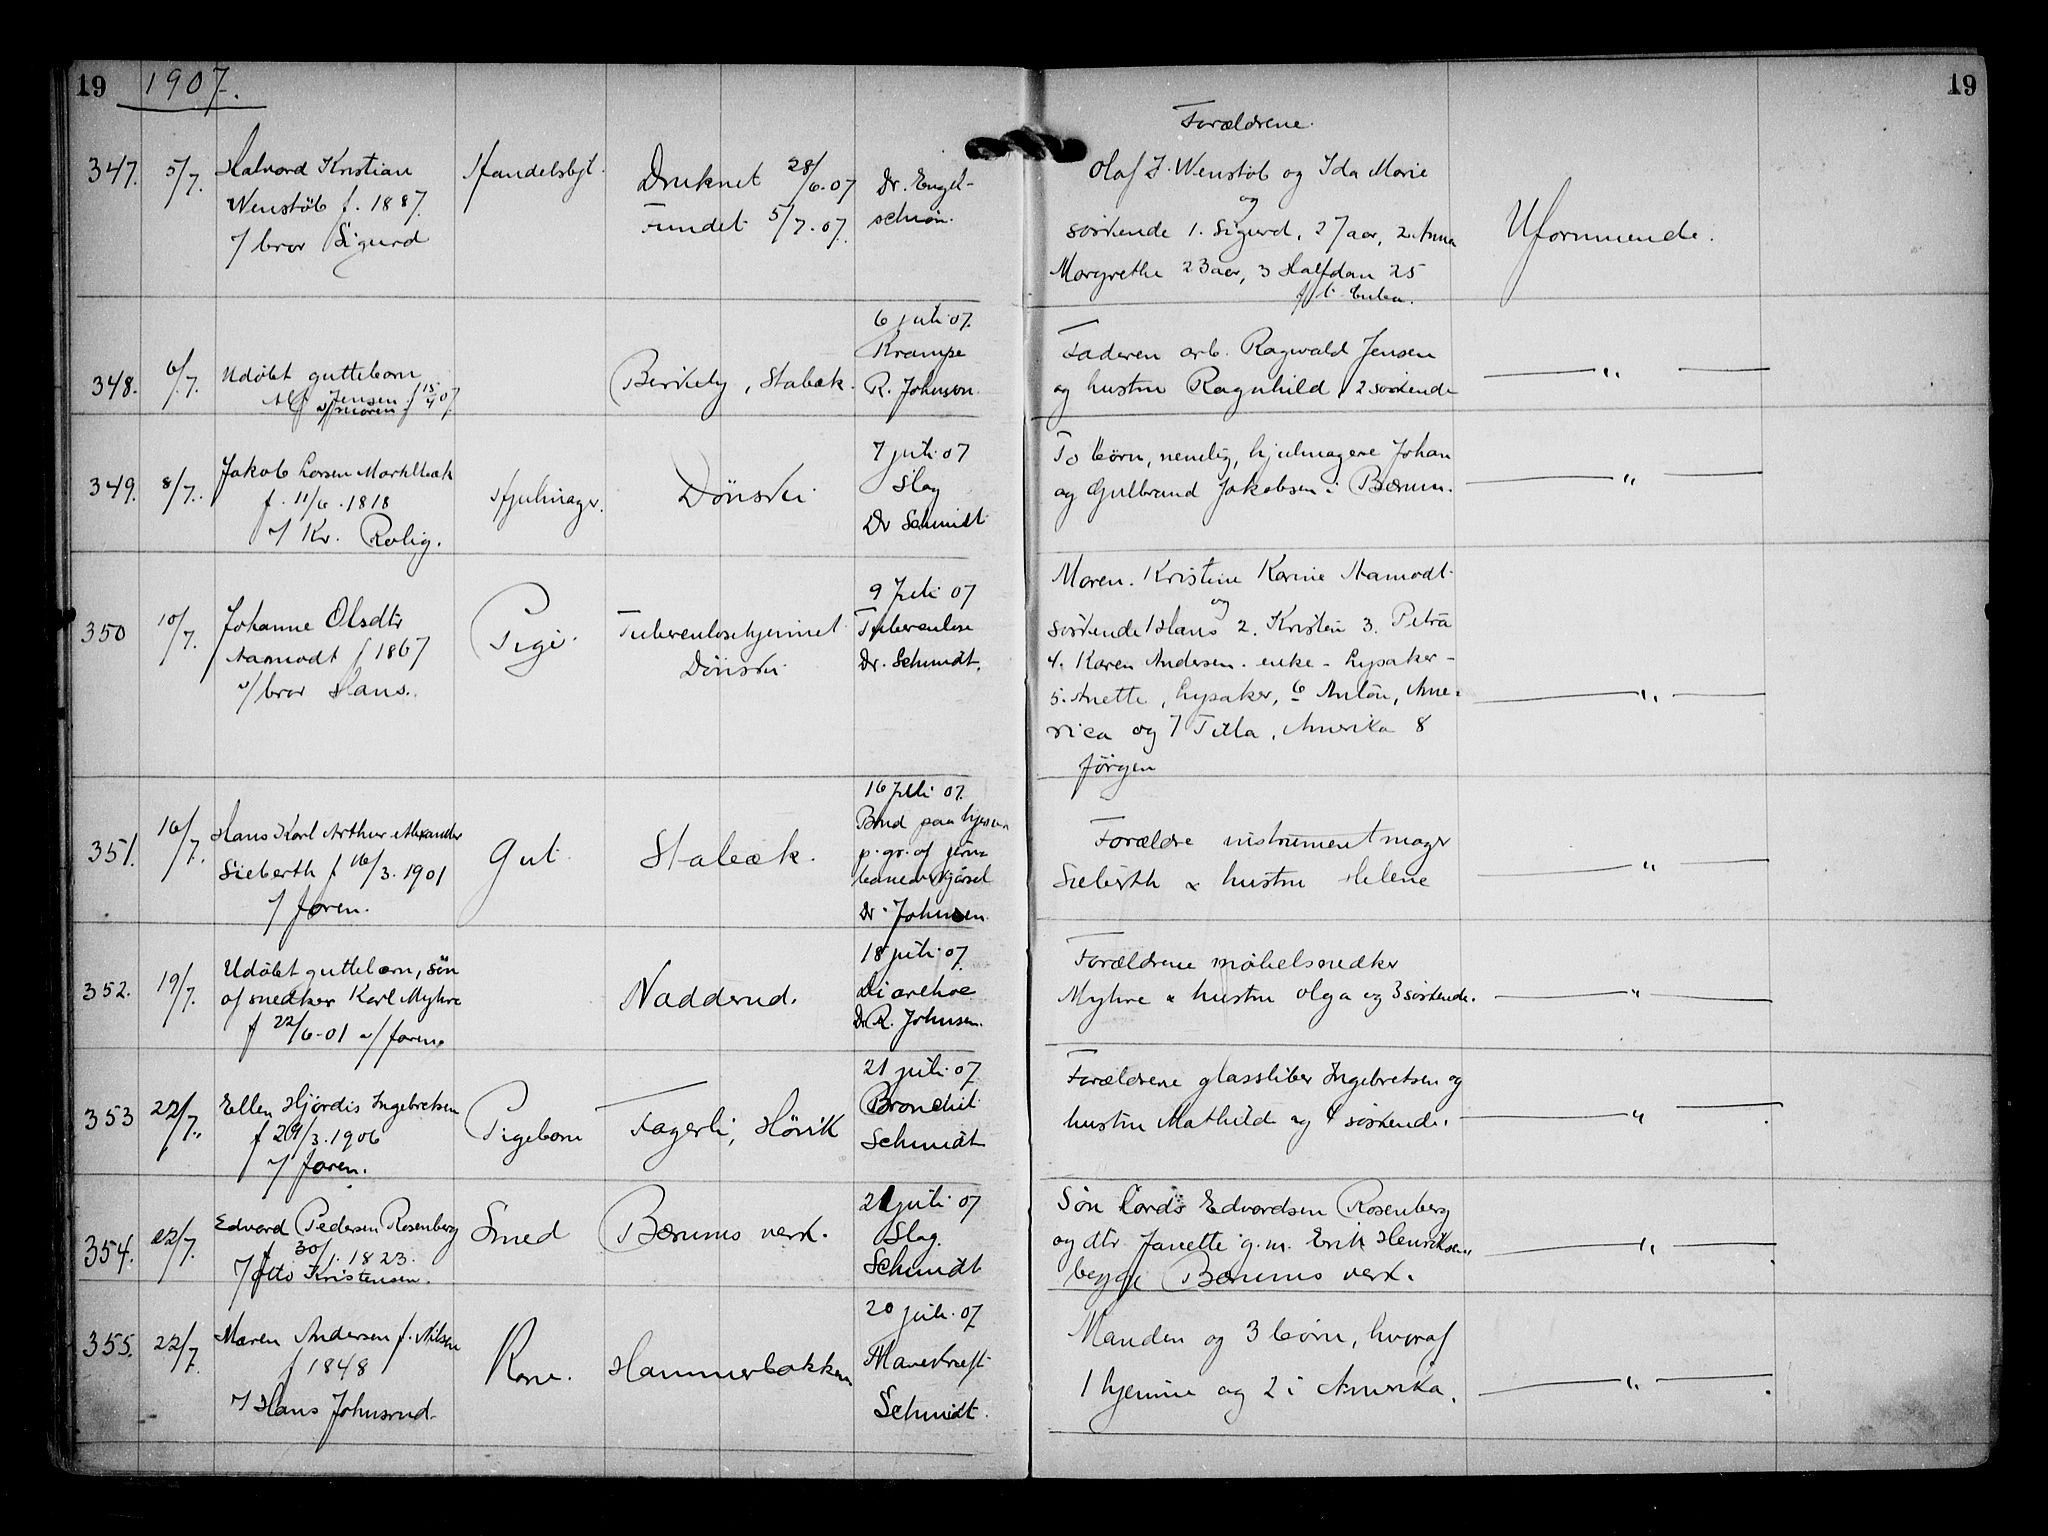 19 1907. 19
347. 5/7. Halvord Kristian
Wenstöb f. 1887.
v/ bror Sigurd
Handelsbjt.
Druknet 28/6.07
Fundet 5/7.07.
Dr. Engel-
schiön.
Forældrene.
Olaf J. Wenstöb og Ida Marie
og
söskende 1. Sigurd, 27 aar, 2. Anna
Margrethe 23 aar, 3 Halfdan 25
Uformuende.
348. 6/7. Udöbt guttebarn
Alf Jensen f 15/4 07.
v/ moren
Birkely, Stabæk.
6 juli 07.
Krampe
R. Johnsen.
Faderen arb. Ragwald Jensen
og hustru Ragnhild, 2 söskende
— " —
349. 8/7. Jakob Larsen Marklbæk
f. 11/6.1818
v/ Kr. Rolig.
Hjulmager.
Dönski
7 juli 07
Slag
Dr Schmidt
To börn, nemlig, hjulmagere Johan
og Gulbrand Jakobsen i Bærum.
— " —
350 10/7. Johanne Olsdtr
Aamodt f 1867
v/ bror Hans.
Pige.
Tuberculosehjemmet
Dönski
9 Juli 07
Tuberculose
Dr. Schmidt.
Moren. Kristine Karine Aamodt
og
söskende 1 Hans 2. Kristen 3. Petra
4. Karen Andersen. enke - Lysaker -
5. Anette, Lysaker, 6 Anton, Ame-
rica og 7 Tilla, Amerika 8
Jörgen
— " —
351. 16/7. Hans Karl Arthur Alexander
Sieberth f 16/3. 1901
v/ faren.
Gut.
Stabæk.
16 Juli 07.
Brud paa hjernen
p. gr. af jern-
baneoverkjörsel
Dr. Johnsen.
Forældre instrumentmager
Sieberth & hustru Helene
— " —
352. 19/7. Udöbt guttebarn, sön
af snedker Karl Myhre
f 22/6-01 v/ faren.
Nadderud.
18 juli 07.
Diarrhoe
Dr R. Johnsen.
Forældrene möbelsnedker
Myhre & hustru Olga og 3 söskende.
— " —
353 22/7. Ellen Hjördis Ingebretsen
f 29/3.1906
v/ faren.
Pigebarn
Fagerli, Hövik
21 juli 07
Bronchit
Schmidt
Forældrene glassliber Ingebretsen og
hustru Mathild og 4 söskende.
— " —
354. 22/7. Edvard Pedersen Rosenberg
f 30/1. 1823.
v/ Otto Kristensen.
Smed
Bærums verk.
21 juli 07
Slag.
Schmidt
Sön Edvardsen Rosenberg
og dtr. Janette g.m. Erik Henriksen,
begge Bærums verk.
— " —
355. 22/7. Maren Andersen f. Nilsen
f 1848
v/ Hans Johnsrud.
Kone.
Hammerbakken
20 juli 07
Mavekræft
Schmidt.
Manden og 3 börn, hvoraf
1 hjemme og 2 i Amerika.
— " —